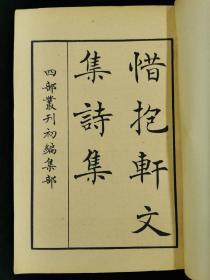 惜抱軒文
集詩集
四部叢刊初編集部